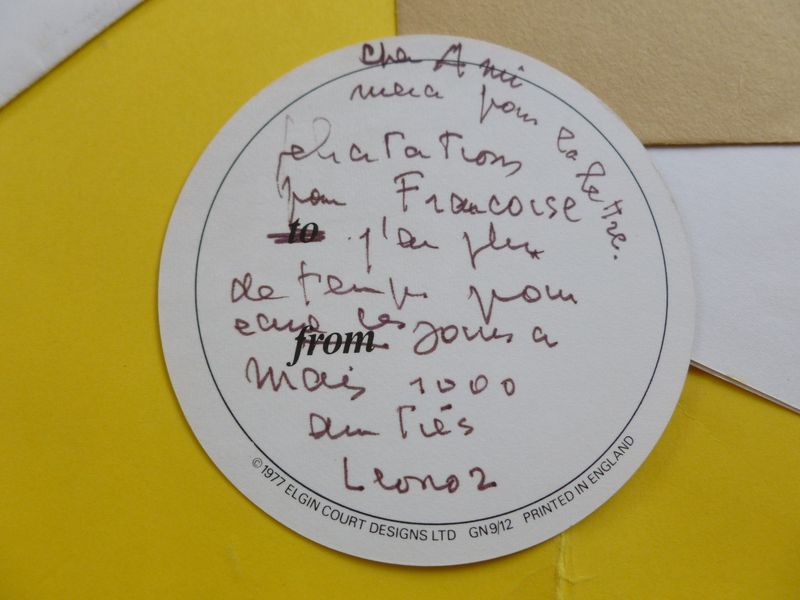 cher Ami
merci pour la lettre.
félicitations
pour Françoise
to j'ai plus
de temps pour
from jours
Mais 1000
amitiés
Leonor
©1977 ELGIN COURT DESIGNS LTD GN9/12 PRINTED IN ENGLAND